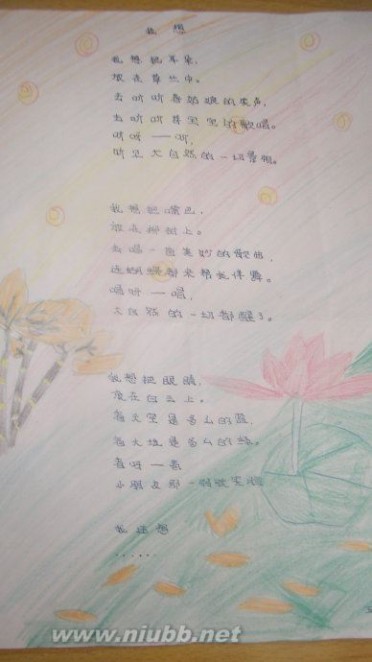 我想
我想把耳朵,
放在草丛中。
去听听春姑娘的笑声,
去听听草宝宝的歌唱。
听呀——听,
听见大自然的一切
我想把嘴巴,
放在柳树上。
去唱一首美妙的歌曲,
连蝴蝶都来帮我伴舞。
唱呀——唱,
大自然的一切都醒了。
我想把眼睛,
放在白云上。
看天空是多么的蓝,
看大地是多么的绿。
看呀——看
小朋友那一张张笑脸
我还想
······
www.niubb.net